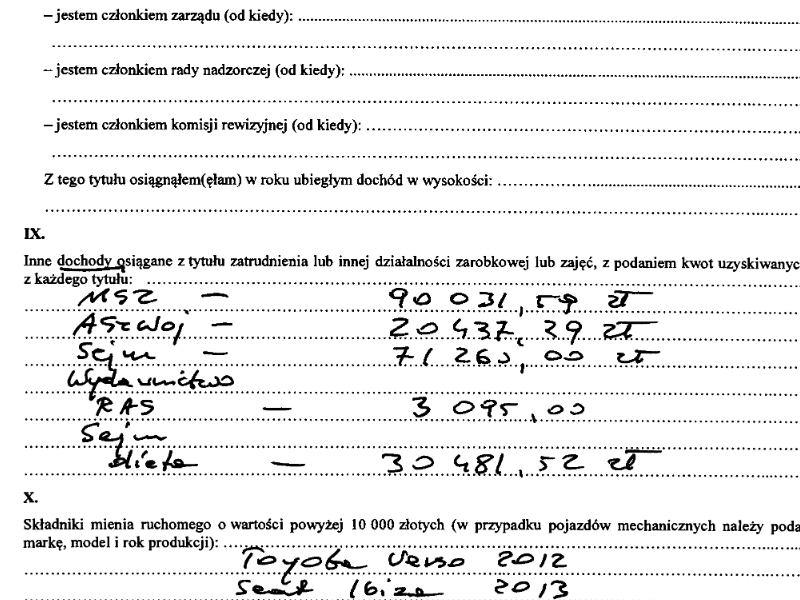 – jestem członkiem zarządu (od kiedy):
– jestem członkiem rady nadzorczej (od kiedy):
– jestem członkiem komisji rewizyjnej (od kiedy):
Z tego tytułu osiągnąłem(ęłam) w roku ubiegłym dochód w wysokości:
IX.
Inne dochody osiągane z tytułu zatrudnienia lub innej działalności zarobkowej lub zajęć, z podaniem kwot uzyskiwanyc
z każdego tytułu:
MSZ – 90 031,59 zł
ASzWoj – 20 437,29 zł
Sejm – 71 260,00 zł
Wydawnictwo
RAS – 3 095,00
Sejm
dieta – 30 481,52 zł
X.
Składniki mienia ruchomego o wartości powyżej 10 000 złotych (w przypadku pojazdów mechanicznych należy poda
markę, model i rok produkcji):
Toyota Verso 2012
Seat Ibiza 2013